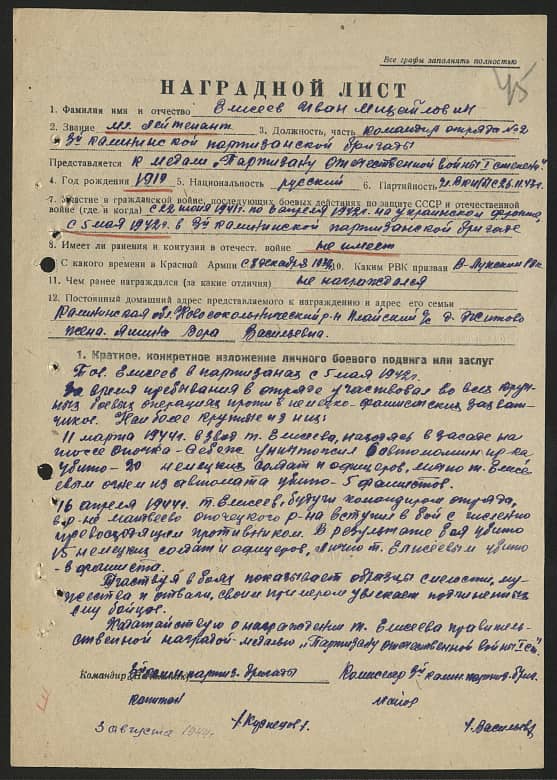 Все графы заполнять полностью
45
НАГРАДНОЙ ЛИСТ
1. Фамилия имя и отчество Елисеев Иван Михайлович
2. Звание мл. лейтенант 3. Должность, часть командир отряда №2
3й калининской партизанской бригады
Представляется к медали „Партизану отечественной войны I степени"
4. Год рождения 1919 5. Национальность русский 6. Партийность
7. Участие в гражданской войне, последующих боевых действиях по защите СССР и отечественной
войне (где и когда) с 22 июня 1941г. по апреля 1942г. на украинском фронте,
с 5 мая 1942г. в 3й калининской партизанской бригаде
8. Имеет ли ранения и контузии в отечест. войне не имеет
9. С какого времени в Красной Армии с декабря 10. Каким РВК призван В-Лукским РВК
11. Чем ранее награждался (за какие отличия) не награждался
12. Постоянный домашний адрес представляемого к награждению и адрес его семьи
Калининская обл. Новосокольнический р-н с/с д.
жена Вера Васильевна.
1. Краткое, конкретное изложение личного боевого подвига или заслуг
Тов. Елисеев в партизанах с 5 мая 1942г.
За время пребывания в отряде участвовал во всех круп-
ных боевых операциях против немецко-фашистских захват-
чиков. Наиболее крупные из них:
11 марта 1944г. взвод т. Елисеева, находясь в засаде на
шоссе Опочка-Себеж уничтожил автомашин пр-ка
убито- 30 немецких солдат и офицеров, лично т. Елисе-
евым огнем из автомата убито- 5 фашистов.
16 апреля 1944г. т. Елисеев, будучи командиром отряда,
в р-не Матвеево опочецкого р-на вступил в бой с численно
превосходящим противником. В результате боя убито
15 немецких солдат и офицеров, лично т. Елисеевым убито
фашиста.
Участвуя в боях показывает образцы смелости, му-
жества и отваги, своим примером увлекает подчиненных
ему бойцов.
Ходатайствую о награждении т. Елисеева правитель-
ственной наградой-медалью „Партизану отечественной войны I ст."
Командир 3й калинин. партиз. бригады Комиссар 3й калин. партиз. бриг.
капитан майор
/Кузнецов/ /Васильев/
3 августа 1944г.